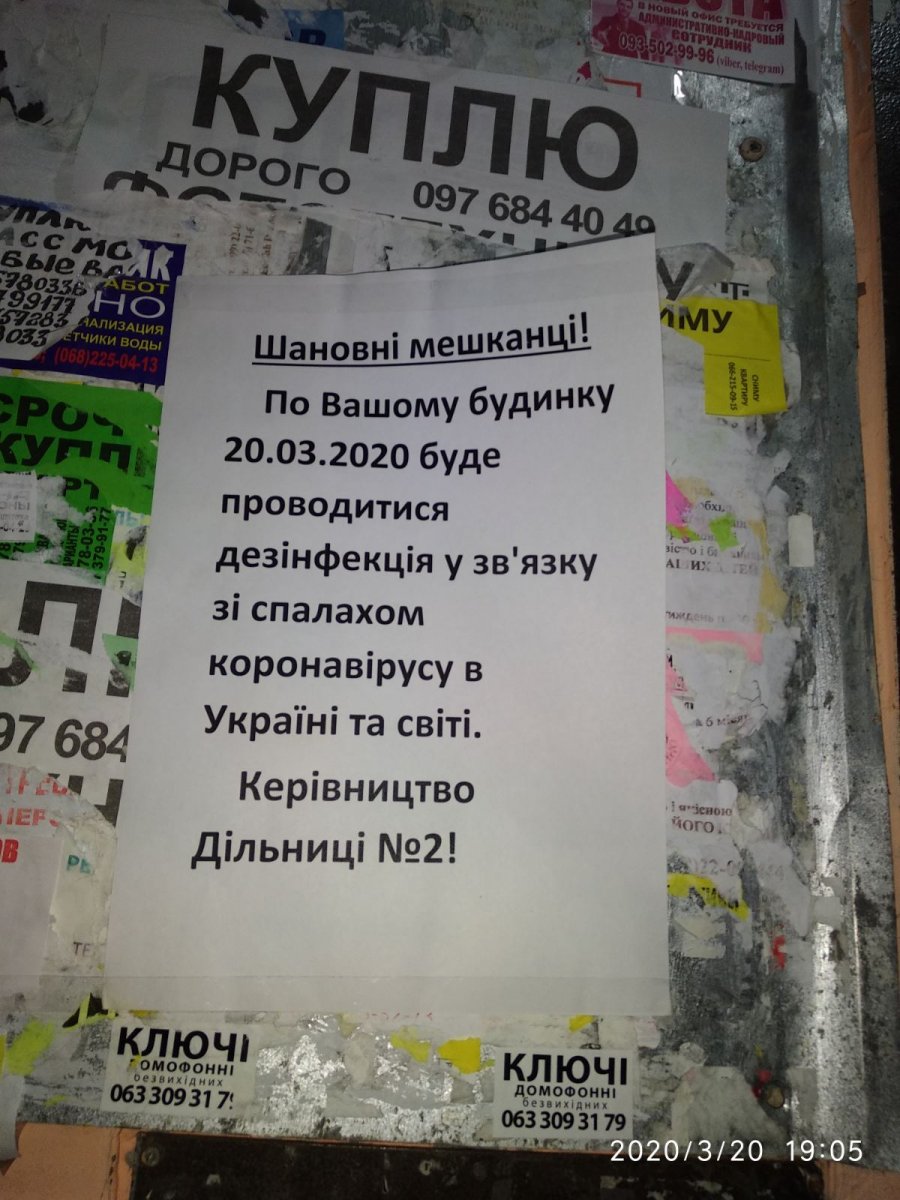 В НОВЫЙ ОФИС ТРЕБУЕТСЯ
АДМИНИСТРАТИВНО-КАДРОВЫЙ
СОТРУДНИК
093-502-99-96 (viber, telegram)
КУПЛЮ
ДОРОГО
097 684 40 49
АБОТ
НО
НАЛИЗАЦИЯ
ЕТЧИКИ ВОДЫ
(068)225-04-13
СРОЧ
КУПЛ
ИМУ
СНИМУ
КВАРТИРУ
Шановні мешканці!
По Вашому будинку
20.03.2020 буде
проводитися
дезінфекція у зв'язку
зі спалахом
коронавірусу в
Україні та світі.
Керівництво
Дільниці №2!
97 684
КЛЮЧІ
ДОМОФОННІ
безвихідних
063 309 31 7
КЛЮЧІ
ДОМОФОННІ
безвихідних
063 309 31 79
2020/3/20 19:05